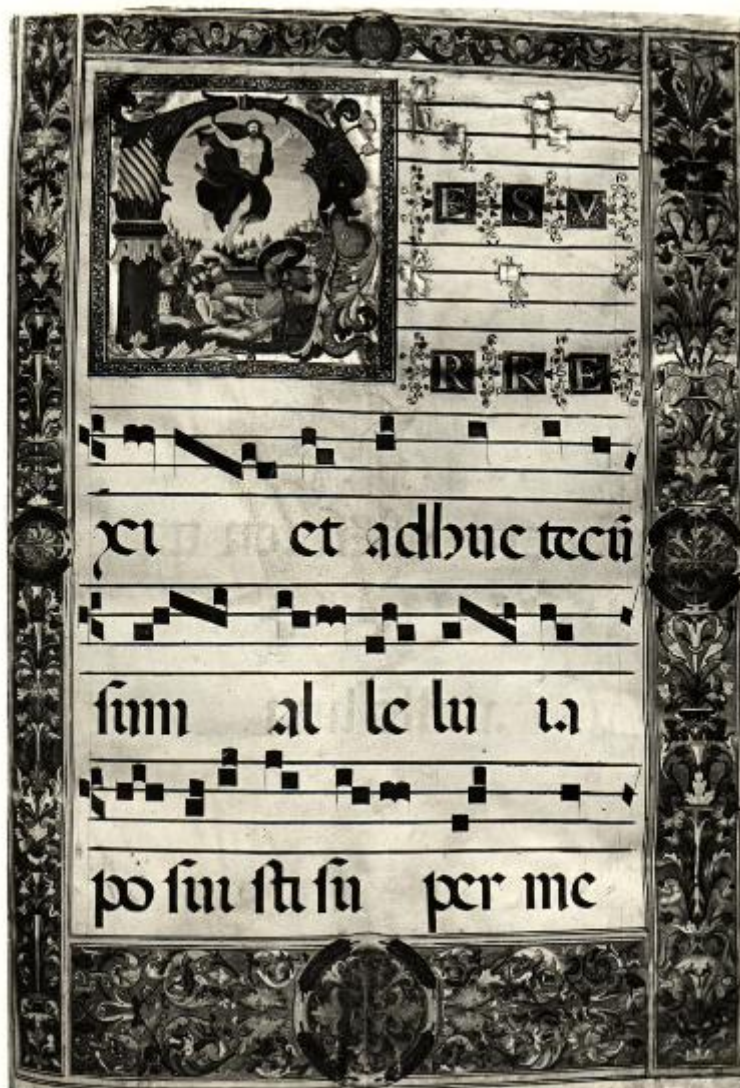 RESV
RRE
xi et adhuc tecū
sum al le lu ia
po sui sti sū per me